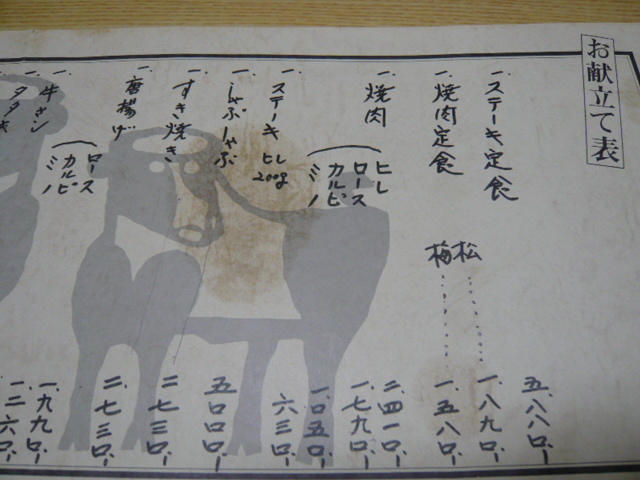 お献立て表
一、ステーキ定食 五、八八〇、-
一、焼肉定食 松 ‥‥‥ 一、八九〇、-
梅 ‥‥‥ 一、五八〇、-
一、焼肉 ヒレ 二、四一〇、-
ロース 一、七九〇、-
カルビ 一、〇五〇、-
ミノ 六三〇、-
一、ステーキ ヒレ 200g
一、しゃぶしゃぶ 二、七三〇、-
一、すき焼き 二、七三〇、-
一、唐揚げ ロース 一、九九〇、-
カルビ 一、二六〇、-
ミノ
一、牛サシ
一、タタキ